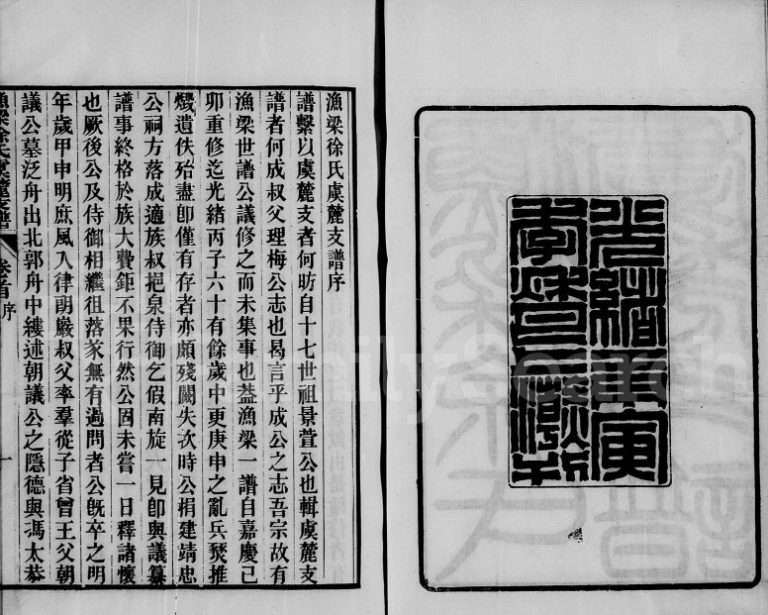 光緒庚寅
漁梁徐氏虞麓支譜序
譜繫以虞麓支者何昉自十七世祖景萱公也輯虞麓支
譜者何成叔父理梅公志也曷言乎成公之志吾宗故有
漁梁世譜公議修之而未集事也葢漁梁一譜自嘉慶己
卯重修迄光緒丙子六十有餘歲中更庚申之亂兵燹推
燬遺佚殆盡卽僅有存者亦頗殘闕失次時公捐建靖忠
公祠方落成適族叔挹泉侍御乞假南旋一見卽與議纂
譜事終格於族大費鉅不果行然公固未嘗一日釋諸懷
也厥後公及侍御相繼徂落家無有過問者公旣卒之明
年歲甲申明庶風入律朗巖叔父率羣從子省曾王父朝
議公墓泛舟出北郭舟中縷述朝議公之隱德與馮太恭
漁梁徐氏虞麓支譜 卷首序 一
FamilySearch